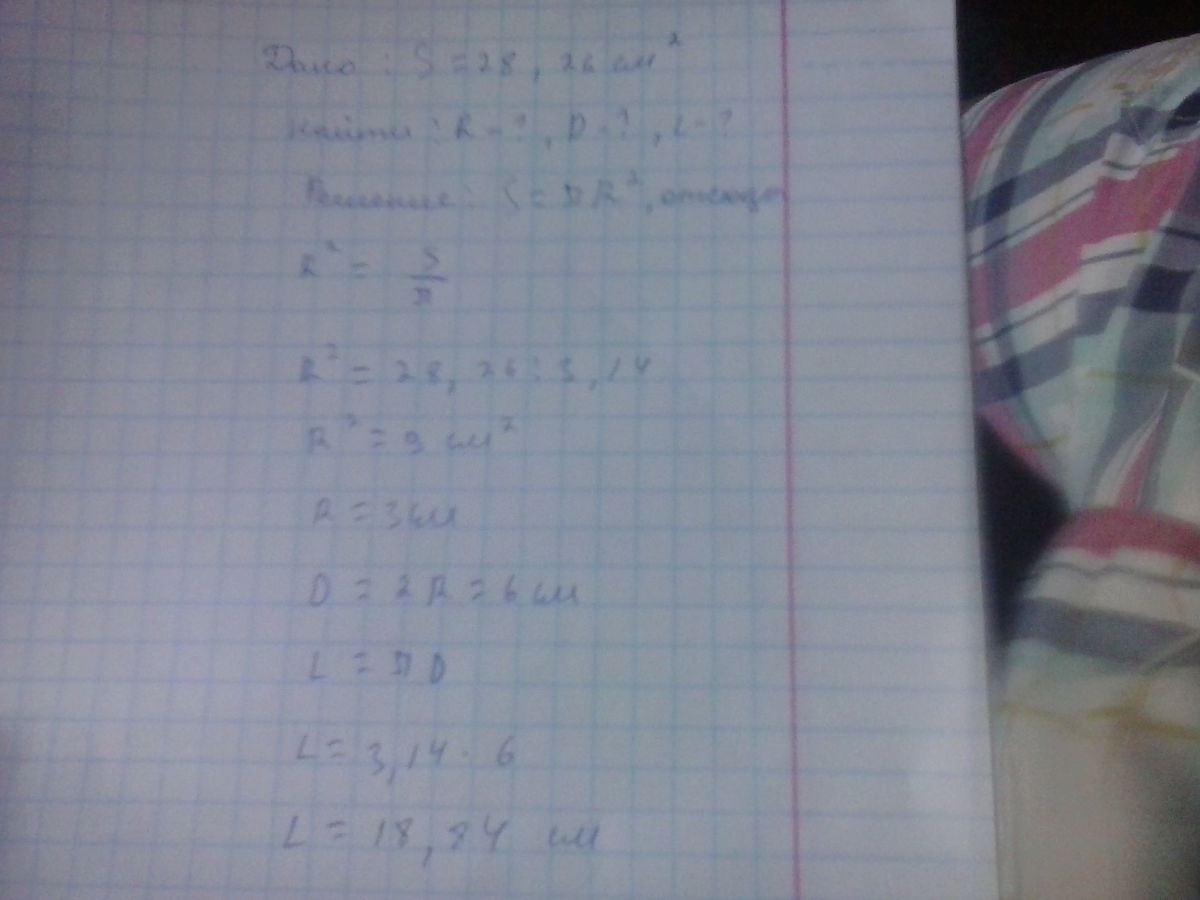 Дано: S = 28,26 см²
Найти: R - ?, D - ?, L - ?
Решение: S = πR², отсюда
R² = S/π
R² = 28,26 : 3,14
R² = 9 см²
R = 3 см
D = 2R = 6 см
L = πD
L = 3,14 · 6
L = 18,84 см